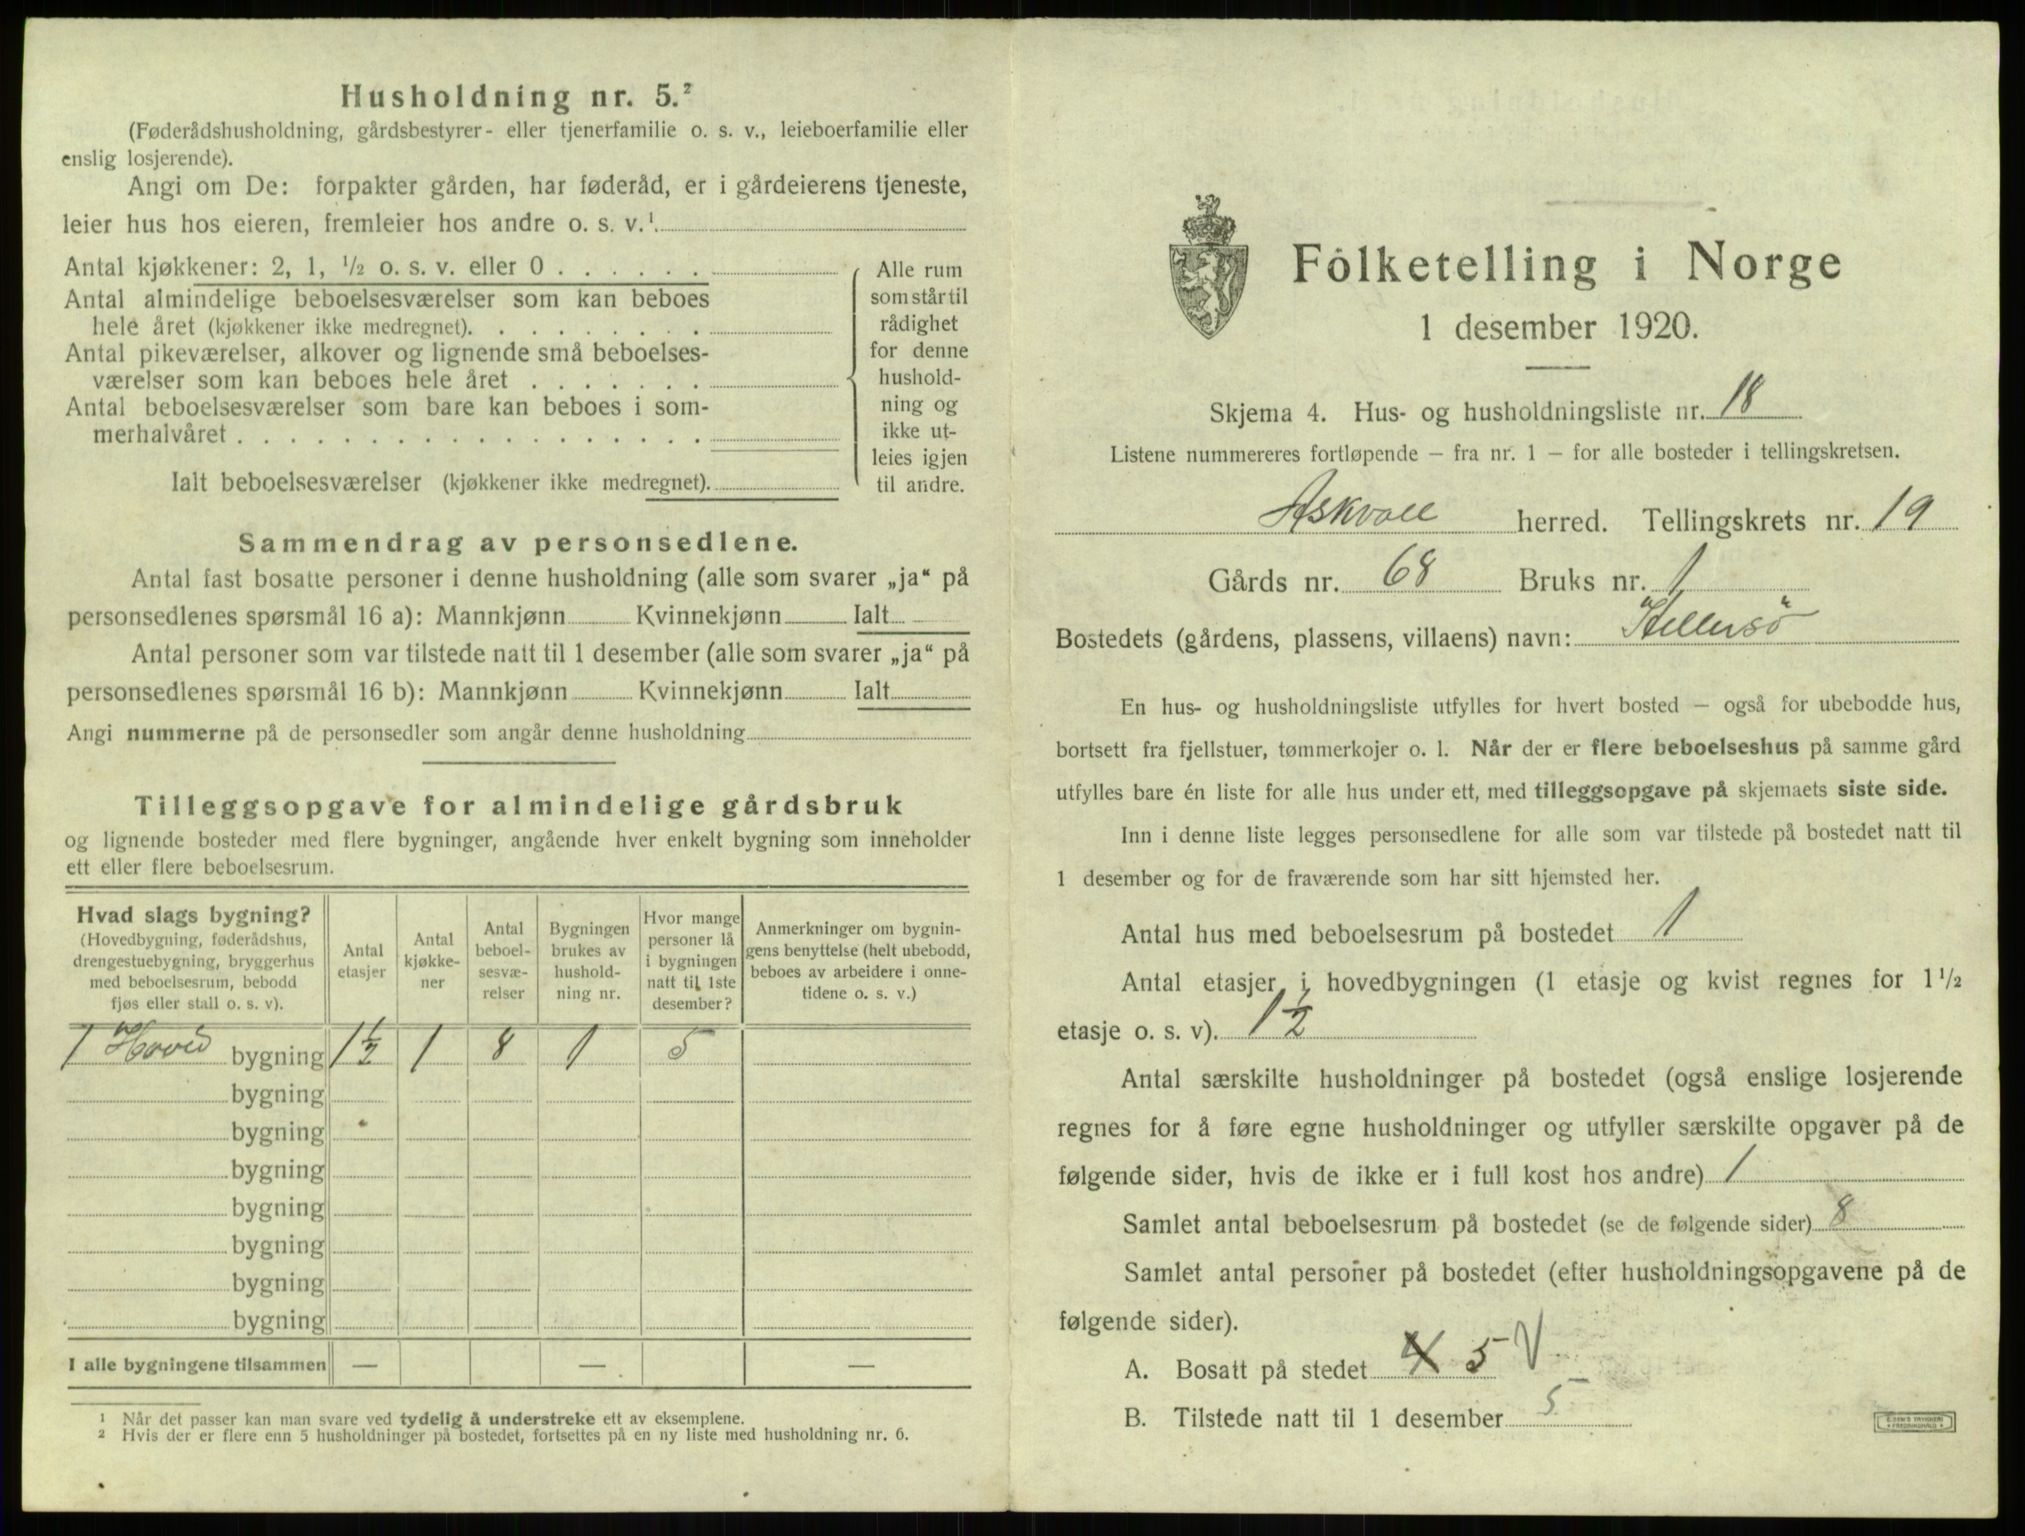 Husholdning nr. 5.²
(Føderådshusholdning, gårdsbestyrer- eller tjenerfamilie o. s. v., leieboerfamilie eller
enslig losjerende).
Angi om De: forpakter gården, har føderåd, er i gårdeierens tjeneste,
leier hus hos eieren, fremleier hos andre o. s. v.¹
Antal kjøkkener: 2, 1, ½ o. s. v. eller 0
Antal almindelige beboelsesværelser som kan beboes
hele året (kjøkkener ikke medregnet).
Antal pikeværelser, alkover og lignende små beboelses-
værelser som kan beboes hele året
Antal beboelsesværelser som bare kan beboes i som-
merhalvåret
Ialt beboelsesværelser (kjøkkener ikke medregnet).
Alle rum
som står til
rådighet
for denne
hushold-
ning og
ikke ut-
leies igjen
til andre.
Sammendrag av personsedlene.
Antal fast bosatte personer i denne husholdning (alle som svarer „ja“ på
personsedlenes spørsmål 16 a): Mannkjønn Kvinnekjønn Ialt
Antal personer som var tilstede natt til 1 desember (alle som svarer „ja“ på
personsedlenes spørsmål 16 b): Mannkjønn Kvinnekjønn Ialt
Angi nummerne på de personsedler som angår denne husholdning
Tilleggsopgave for almindelige gårdsbruk
og lignende bosteder med flere bygninger, angående hver enkelt bygning som inneholder
ett eller flere beboelsesrum.
Hvad slags bygning?
(Hovedbygning, føderådshus,
drengestuebygning, bryggerhus
med beboelsesrum, bebodd
fjøs eller stall o. s. v).
Antal
etasjer
Antal
kjøkke-
ner
Antal
beboel-
sesvæ-
relser
Bygningen
brukes av
hushold-
ning nr.
Hvor mange
personer lå
i bygningen
natt til 1ste
desember?
Anmerkninger om bygnin-
gens benyttelse (helt ubebodd,
beboes av arbeidere i onne-
tidene o. s. v.)
1 Hoved bygning 1½ 1 8 1 5
bygning
bygning
bygning
bygning
bygning
bygning
bygning
I alle bygningene tilsammen — — —
¹ Når det passer kan man svare ved tydelig å understreke ett av eksemplene.
² Hvis der er flere enn 5 husholdninger på bostedet, fortsettes på en ny liste med husholdning nr. 6.
Folketelling i Norge
1 desember 1920.
Skjema 4. Hus- og husholdningsliste nr. 18
Listene nummereres fortløpende – fra nr. 1 – for alle bosteder i tellingskretsen.
Askvoll herred. Tellingskrets nr. 19
Gårds nr. 68 Bruks nr. 1
Bostedets (gårdens, plassens, villaens) navn: "Hellersö"
En hus- og husholdningsliste utfylles for hvert bosted – også for ubebodde hus,
bortsett fra fjellstuer, tømmerkojer o. l. Når der er flere beboelseshus på samme gård
utfylles bare én liste for alle hus under ett, med tilleggsopgave på skjemaets siste side.
Inn i denne liste legges personsedlene for alle som var tilstede på bostedet natt til
1 desember og for de fraværende som har sitt hjemsted her.
Antal hus med beboelsesrum på bostedet 1
Antal etasjer i hovedbygningen (1 etasje og kvist regnes for 1½
etasje o. s. v). 1½
Antal særskilte husholdninger på bostedet (også enslige losjerende
regnes for å føre egne husholdninger og utfyller særskilte opgaver på de
følgende sider, hvis de ikke er i full kost hos andre) 1
Samlet antal beboelsesrum på bostedet (se de følgende sider) 8
Samlet antal personer på bostedet (efter husholdningsopgavene på de
følgende sider).
A. Bosatt på stedet 4 5 V
B. Tilstede natt til 1 desember 5